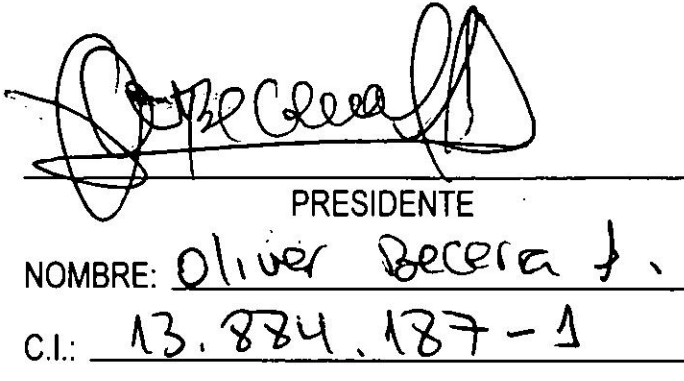 PRESIDENTE
NOMBRE: Oliver Becerra
C.I.: 13.884.187-1